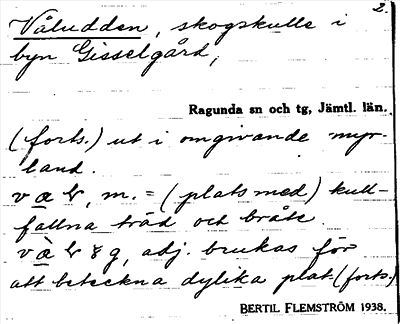 2.
Våludden, skogskulle i
byn Gisselgård,
Ragunda sn och tg, Jämtl. län.
(forts.) ut i omgivande myr-
land.
m. = (plats med) kull-
fallna träd och bråte.
adj. brukas för
att beteckna dylika plat (forts.)
BERTIL FLEMSTRÖM 1938.